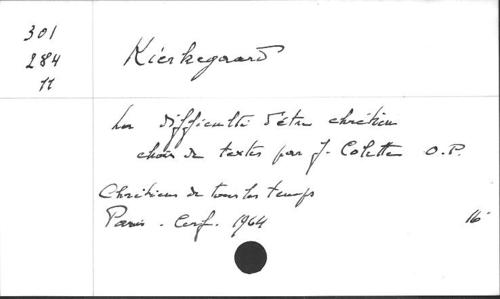 301
284
11
Kierkegaard
La difficulté d'être chrétien
choix de textes par J. Colette O.P.
Chrétiens de tous les temps
Paris. Cerf. 1964 16°